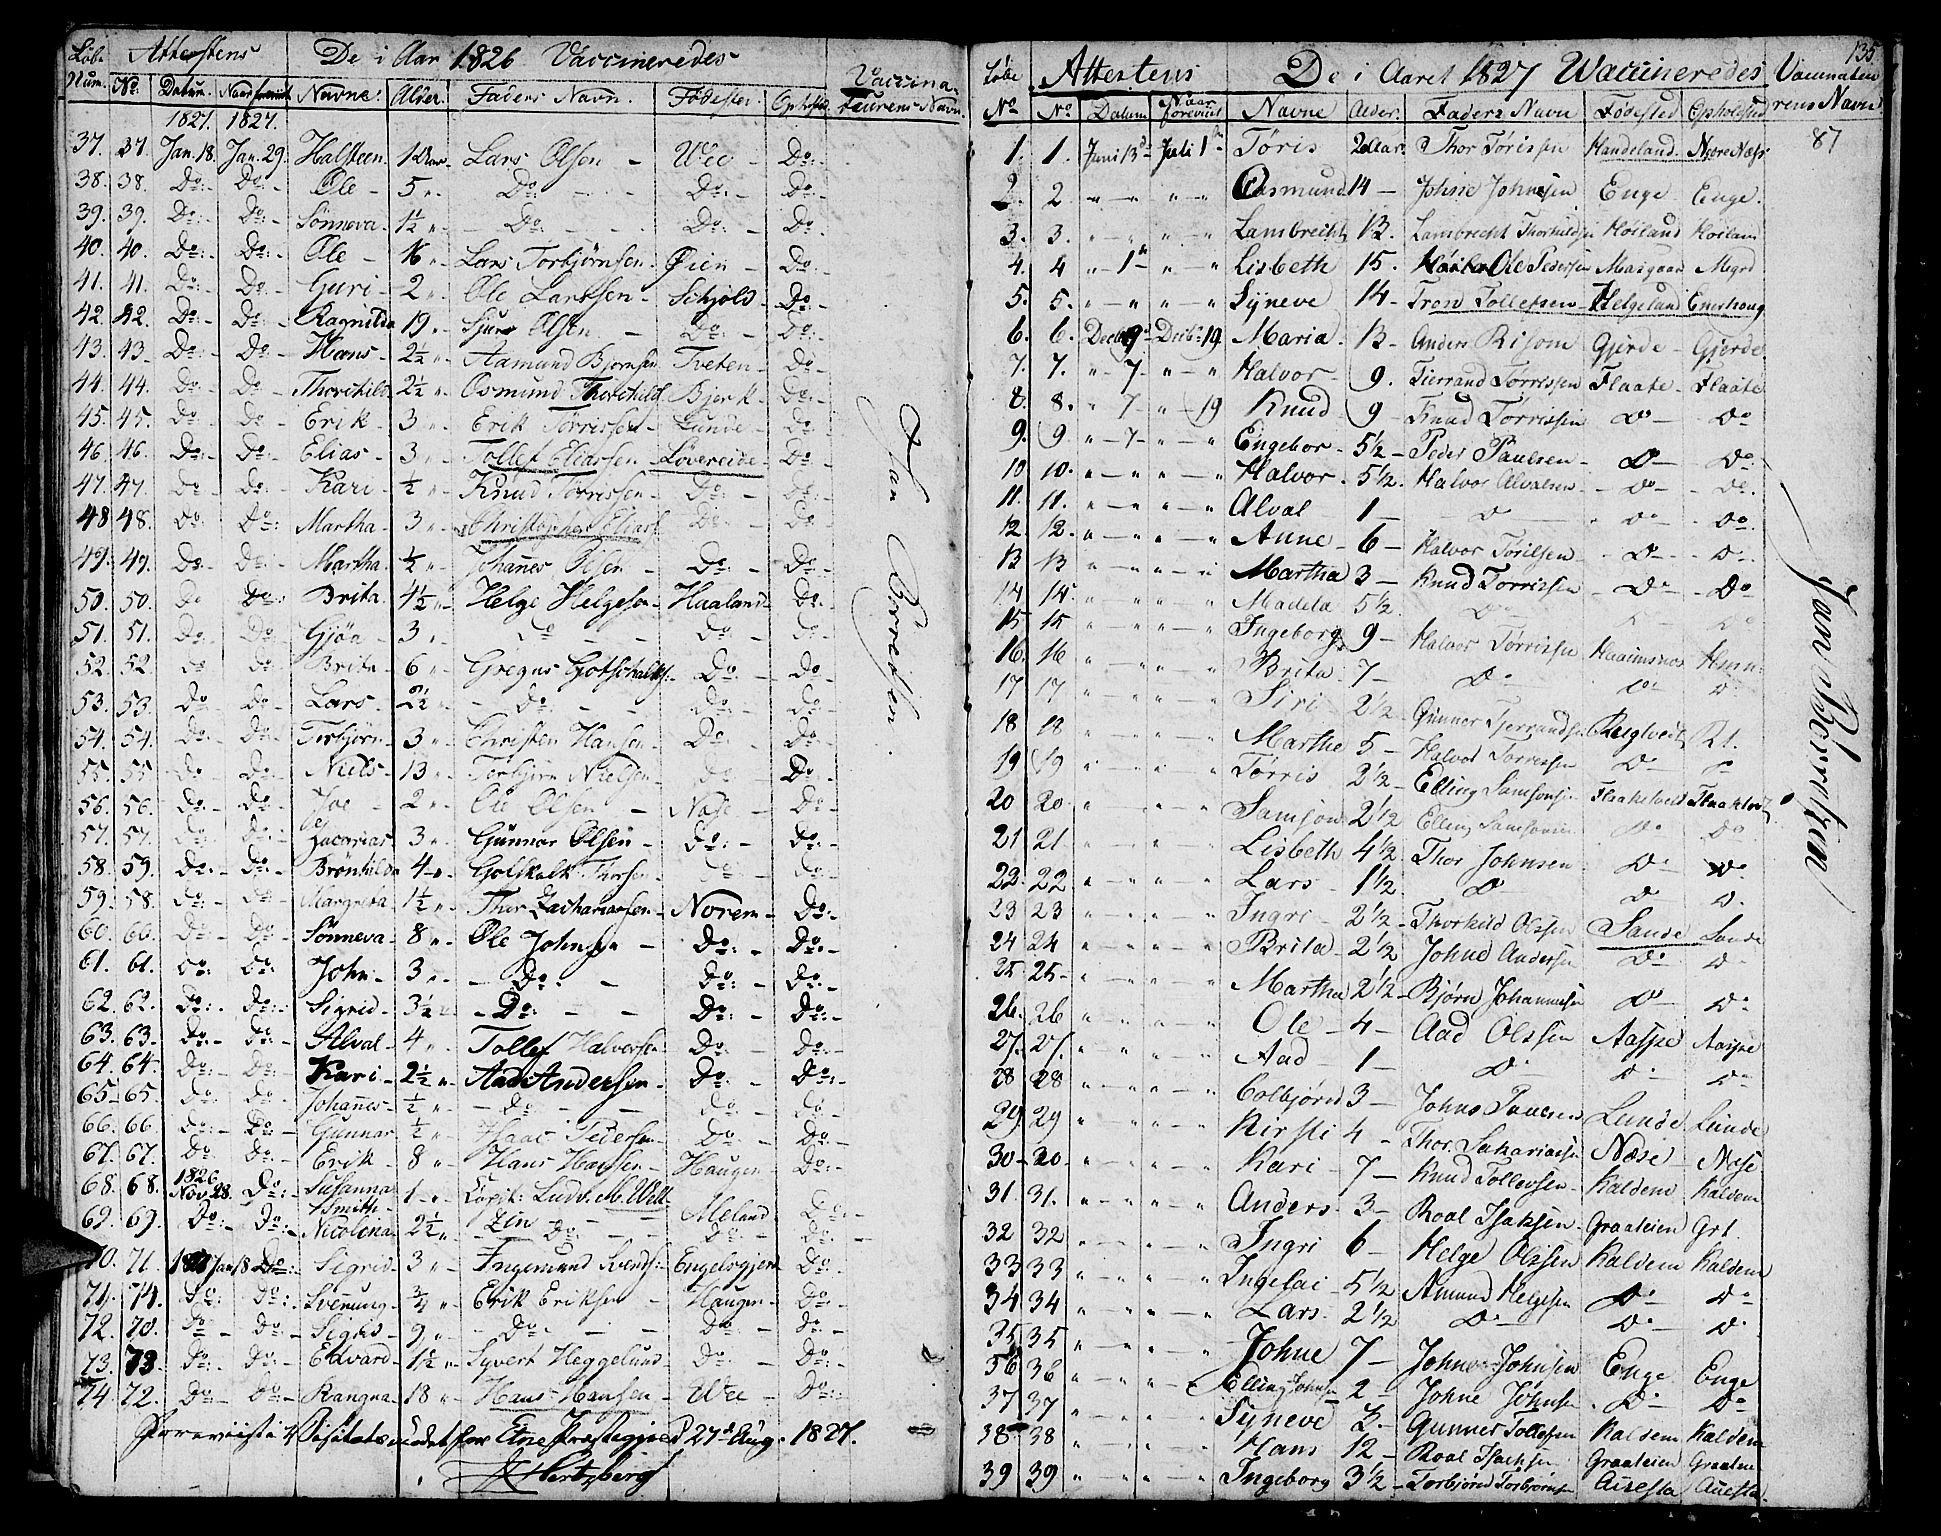 Löbe Num. Attestens De i Aar 1826 Vaccineredes
No. Datum. Naar Navne. Alder. Faders Navn. Födested. Vaccinateurens Navn.
1827. 1827.
37. 37. Jan. 18. Jan. 29. Halsteen 1 Aar Lars Olsen - Wee - Do:
38. 38. Do: Do: Ole - 5 " Do: - Do: Do:
39. 39. Do: Do: Sönneva 1½ " Do: - Do: Do:
40. 40. Do: Do: Ole - 16 " Lars Torbjörnsen Öien - Do:
41. 41. Do: Do: Guri - 2 " Ole Larssen - Schjold - Do:
42. 42. Do: Do: Ragnilda 19 " Sjur Olsen - Do: Do:
43. 43. Do: Do: Hans - 2½ " Aamund Bjornsen Tveten - Do:
44. 44. Do: Do: Thorchild 2½ " Osmund Thorchilds. Bjerk - Do:
45. 45. Do: Do: Erik - 3 " Erik Torrissen - Lunde - Do:
46. 46. Do: Do: Elias - 3 " Tollef Eliassen Lövereide Do:
47. 47. Do: Do: Kari - ½ " Knud Törrissen - Do: Do:
48 48. Do: Do: Martha - 3 " Christopher Elias. Do: Do:
49. 49. Do: Do: Martha - ½ " Johanes Olsen - Do: Do:
50. 50. Do Do: Brita 4½ " Helge Helgesen - Haaland Do:
51. 51. Do: Do: Gjöa - 3 " Do - Do: Do:
52. 52 Do Do: Brita - 6 " Gregus Gotschalks. Do: Do
53. 53. Do Do: Lars - 2½ " Do: - Do: Do:
54. 54. Do: Do: Torbjörn 3 " Christen Hansen Do: Do:
55. 55 Do: Do: Niels - 13 " Torbjörn Nielsen - Do: Do:
56. 56. Do: Do: 2 " Ole Olsen - Næse - Do:
57. 57. Do: Do: Zacarias 3 " Gunnar Olsen - Do: Do:
58. 59. Do: Do: Brönhilda 4 " Golskalk Thorsen - Do: Do:
59. 58. Do: Do: Margreta 1½ " Thor Zachariassen - Norem - Do:
60. 60. Do: Do: Sönneva 8 " Ole Johnsen - Do: Do:
61. 61. Do: Do: John - 3 " Do: - Do: Do:
62. 62. Do: Do: Sigrid 3½ " Do: - Do: Do:
63. 63. Do: Do: Alval - 4 " Tollef Halversen Do: Do:
64. 64. Do: Do: Kari - 2½ " Aad Andersen - Do: Do:
65 65. Do: Do: Johanes - ½ " Do: - Do: Do:
66. 66. Do: Do: Gunnar ½ " Isaac Pedersen Do: Do:
67. 67. Do: Do: Erik - 8 " Hans Hansen - Haugen Do:
68. 68. 1826 Nov. 28. Do: Susanna Smith 1 " Ludv. M. Welt- Meland Do:
69. 69. Do: Do: Nicolena 2½ " zin Do: Do: Do:
70. 71. Jan 18 Do: Sigrid 3 " Ingemund Svends: Engelsgjerd Do:
71. 74. Do: Do: Svenung ¾ " Erik Eriksen Haugen Do:
72. 70. Do: Do: 9 " Do: - Do: Do:
73. 73. Do: Do: Edvard 1½ " Syvert Heggelund Do: Do:
74 72. Do: Do: Rangna 18 " Hans Hansen - Wee - Do:
Jan Borretsen.
Etne Præstegjeld 27de Aug. 1827.
Hertzberg
135
Löbe No Attestens De i Aaret 1827 Waccineredes Vaccinateurens Navn
No Datum Naar foreviist Navne Alder. Faders Navn Födested Opholdsted
1. 1. Juni 13de Juli 1ste Töris 20 Aar. Thor Törissen Handeland Nære Næss 87
2. 2 " " Aasmund 14 - Johne Johnsen Enge Enge.
3. 3. " " Lambrecht 13. Lambrecht Thorkildsen Höiland Höiland
4. 4 " 1 " Lisbeth 15. Ole Pedersen Masgaar Msgrd
5. 5. " " Syneve 14 - Tron Tollefsen Helgeland
6. 6. Decbr. 9de Decbr. 19 Maria 13 - Anders Risom Gjerde - Gjerde
7. 7. " 7 " Halvor 9. Tjerrand Törrissen Flaate - Flaate
8. 8. " 7 " 19 Knud 9 - Knud Törrissen Do Do
9. 9 " 7 " Engebor 5½ - Peder Paulsen Do Do
10 10. " " Halvor 5½. Halvor Alvalsen Do Do.
11. 11. " " Alval 1 - Do Do Do.
12. 12. " " Anne 6 - Halvor Törilsen Do Do.
13 13 " " Martha 3 - Knud Torrissen Do Do
14 14 " " Madela 5½ Do Do
15 15 " " Ingeborg 9 - Halvor Törrissen Haaimsnes Hmn:
16. 16 " " Brita 7 - Do Do Do
17 17 " " Siri 2½. Gunner Tjerrandsen
18 18 " " Marthe 5 - Halvor Torressen Do Do
19 19 " " Törris 2½ Elling Samsonsen Flaatetvedt
20 20 " " Samson 2½ Elling Samsonsen Do Do
21 21 " " Lisbeth 4½ Thor Johnsen Do Do
22. 22 " " Lars - 1½ Do Do Do.
23 23 " " Ingri - 2½ Thorkild Olssen Sande Sande
24 24 " " Brita 2½ Johne Andersen Do Do
25 25 " " Martha 2½ - Bjørn Johannesen Do Do
26. 26 " " Ole 4 - Aad Olssen Aasspe Aasspe
27. 27. " " Aad 1 - Do Do Do
28 28 " " Colbjörn 3 - Johne Paulsen Lunde Lunde
29 29 " " Kirsti 4 - Thor Sakariasen Næse Næse
30 - 20 " " Kari - 7 - Knud Tollevsen Kaldem Kaldem
31. 31. " " Anders 3 - Roal Isaksen Graaleien Grl.
32 32 " " Ingri 6 - Helge Olssen Kaldem Kaldem
33 33 " " Ingelai 5½ Amund Helgesen Do Do
34 34 " " Lars 2½ Do Do Do
35 35 " " Johne 7 - Johne Johnsen Enge Enge
36 36 " " Elling Johnsen 2 - Johne Johnsen Do Do
37 37 " " Syneve 3 - Gunner Tollefsen Kaldem Kaldem
38. 38 " " Hans 12 - Roal Isaksen Graaleien Graalne
39 39 " " Ingeborg 3½ - Torbjörn Torbjörnsen Auesta Auesta.
Jan Borretsen